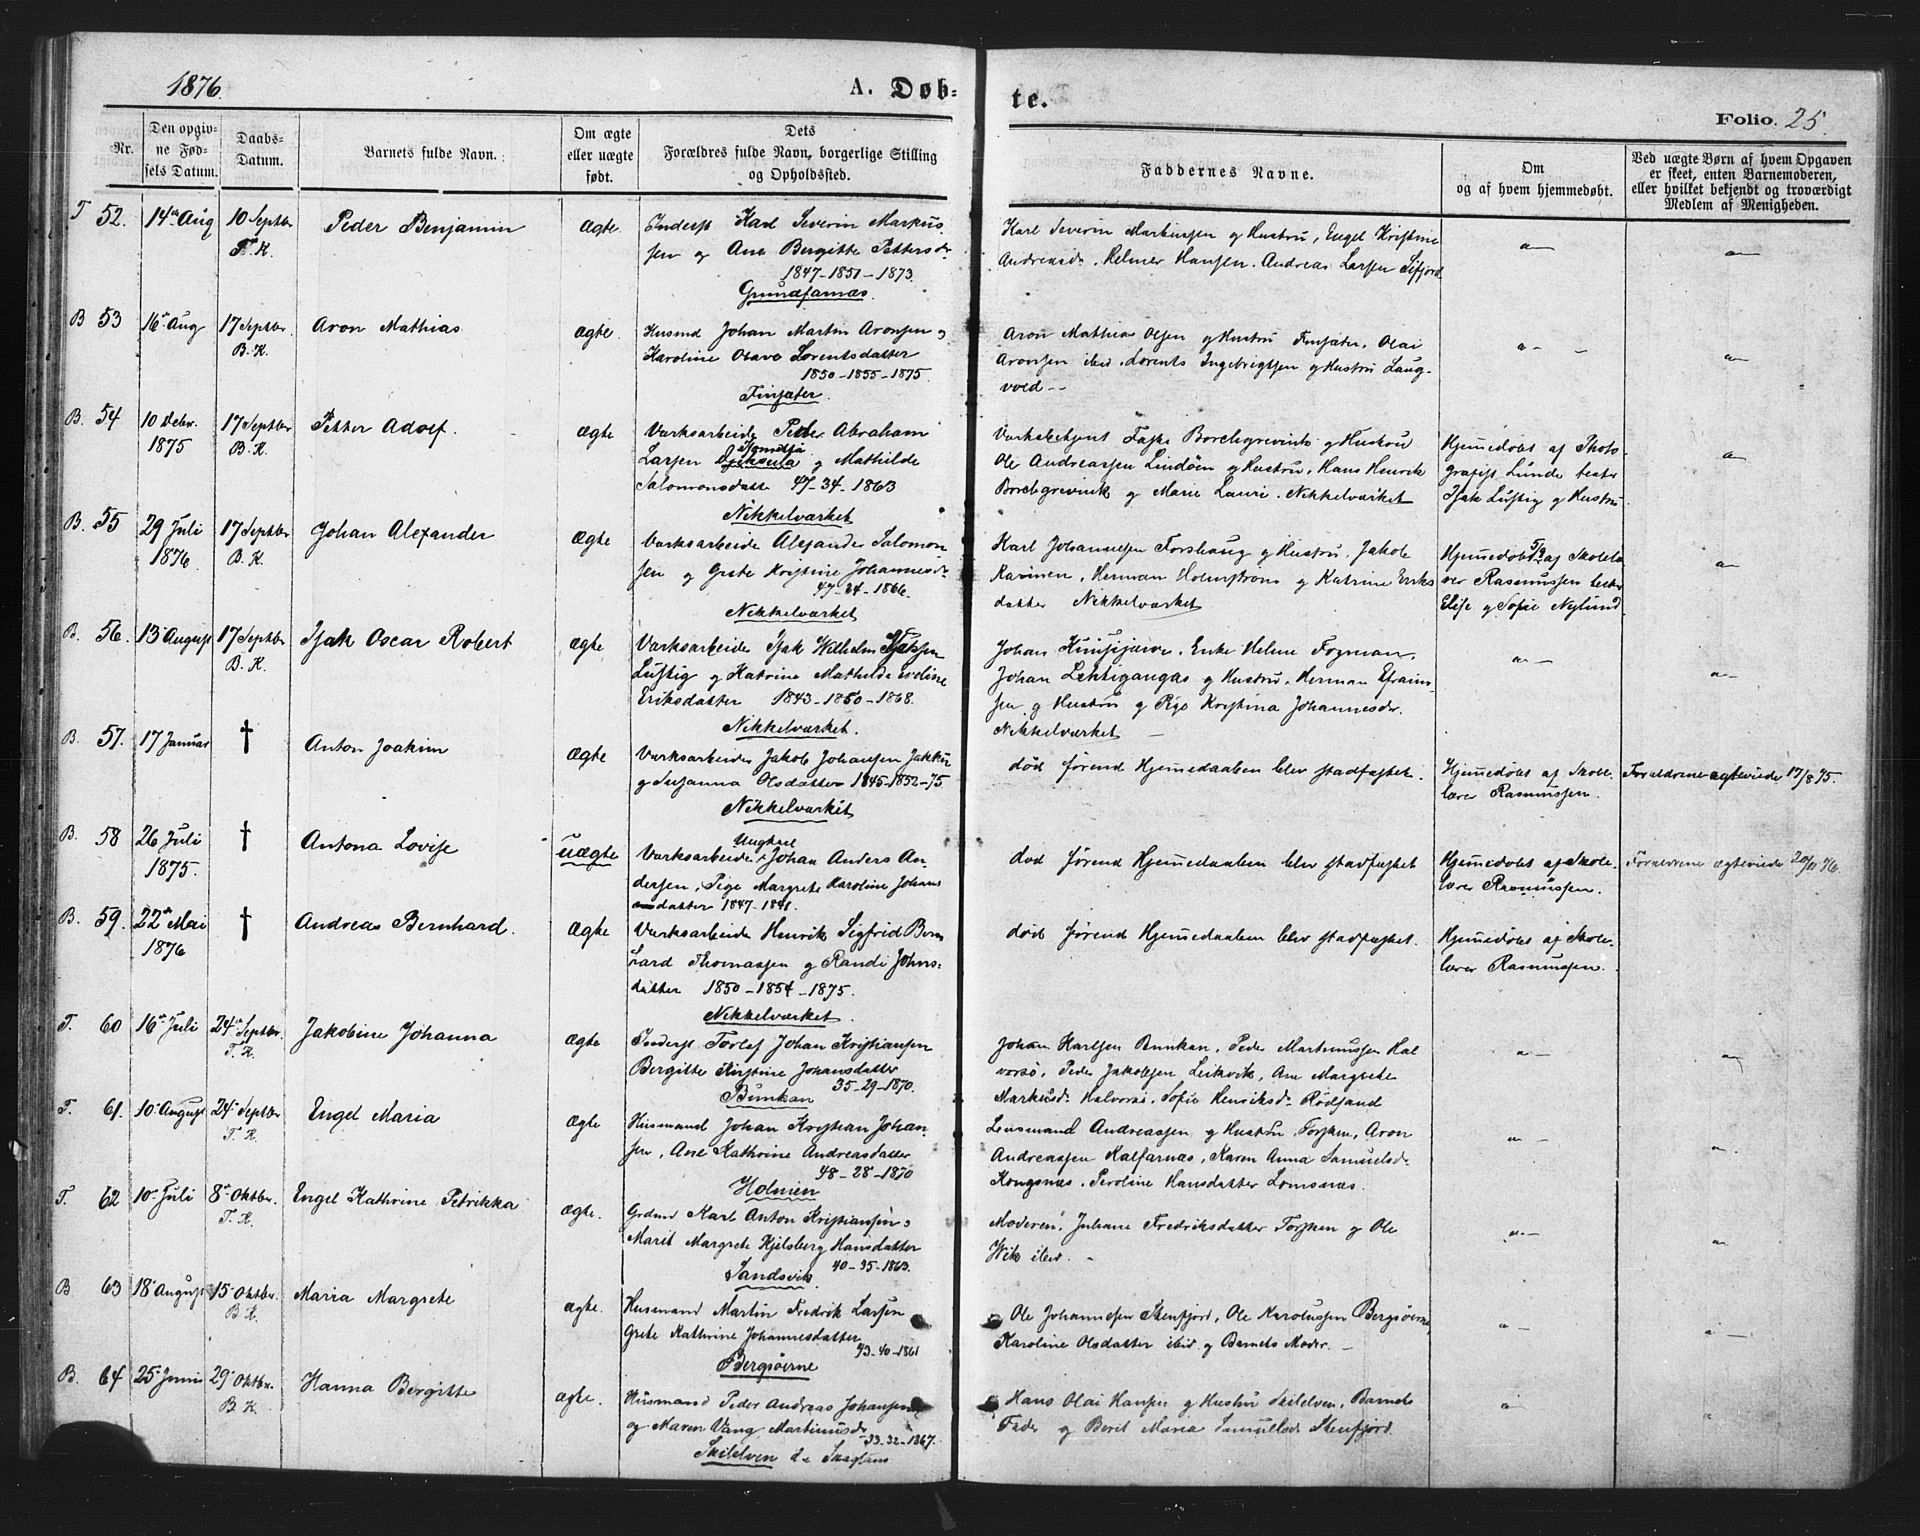 1876.
A. Døb-
te.
Folio. 25.
Nr.
Den opgiv-
ne Fød-
sels Datum.
Daabs-
Datum.
Barnets fulde Navn.
Om ægte
eller uægte
født.
Dets
Forældres fulde Navn, borgerlige Stilling
og Opholdssted.
Faddernes Navne.
Om
og af hvem hjemmedøbt.
Ved uægte Børn af hvem Opgaven
er skeet, enten Barnemoderen,
eller hvilket bekjendt og troværdigt
Medlem af Menigheden.
T 52. 14de Aug 10 Septbr Peder Benjamin ægte. Inderst Karl Severin Markus-
T.K.
sen og Ane Bergitte Pettersd.
1847-1851-1873
Grundfarnæs.
Karl Severin Markussen og Hustru, Engel Kristine
Andreasd. Helmer Hansen. Andreas Larsen Sifjord
B 53 16de Aug 17 Septbr Aron Mathias ægte. Husmd Johan Martin Aronsen og
B.K.
Karoline Olava Lorentsdatter
1850-1855-1875.
Finsæter.
Aron Mathias Olsen og Hustru Finsæter. Olai
Aronsen ibid. Lorents Ingebrigtsen og Hustru Laug-
vold -
B. 54 10 Debr. 17 Septbr Petter Adolf. ægte Værksarbeider Peder Abraham
1875 B.K.
Larsen og Mathilde
Salomonsdatt 47-34-1863
Nikkelværket
Borchgrevink og Hustru
Ole Andreassen Lindøen og Hustru, Hans Henrik
Borchgrevink og Marie Lauri. Nikkelværket
Hjemmedøbt af Photo-
grafist Lunde
Isak Lustig og Hustru
B. 55 29 Juli 17 Septbr Johan Alexander ægte Værksarbeide Alexander Salomon-
1876. B.K.
sen og Grete Kristine Johannesd.
47-24-1866.
Nikkelværket
Karl Johannesen Forshaug og Hustru, Jakob
Herman Holmstrøm og Katrine Eriks
datter Nikkelværket
Hjemmedøbt 5/9 af Skolelæ
rer Rasmussen
Elise og Sofie Nylund
B. 56. 13 August 17 Septbr Isak Oscar Robert ægte Værksarbeider Isak Wilhelm
B.K.
Lustig og Katrine Mathilde Eveline
Eriksdatter 1843-1850-1868.
Nikkelværket.
Johan Enke Helene Fogman.
Johan Lehtigangas og Hustru. Herman Efraim-
sen og Hustru og Pige Kristina Johannesdr.
Nikkelværket -
B. 57. 17 Januar † Anton Joakim ægte Værksarbeider Jakob Johansen
og Susanna Olsdatter 1845-1852-75
Nikkelværket
død førend Hjemedaaben blev stadfæstet.
Hjemedøbt af Skole-
lærer Rasmussen.
Forældrene ægteviede 17/8 75.
B. 58 26 Juli † Antona Lovise uægte Ungkarl
1875.
Værksarbeider Johan Anders An-
dersen, Pige Margrete Karoline Johans
datter 1847-1841.
død førend Hjemedaaben blev stadfæstet
Hjemedøbt af Skole-
lærer Rasmussen.
Forældrene ægteviede 20/11 76.
B. 59. 22de Mai † Andreas Bernhard. ægte Værksarbeide Henrik Sigfrid Bern
1876
hard Thomassen og Randi Johns-
datter 1850-1854-1875.
Nikkelværket
død førend Hjemedaaben blev stadfæstet.
Hjemedøbt af Skole-
lærer Rasmussen.
T. 60 16de Juli 24de Septbr. Jakobine Johanna ægte Inderst Torlef Johan Kristiansen
T.K.
Bergitte Kirstine Johansdatter
35-29-1870.
Bunkan
Johan Karlsen Bunkan, Peder Martinussen Hal
vorsø, Peder Jakobsen Leikvik, Ane Margrete
Markusd. Halvorsø, Sofie Henriksd. Rødsand
T. 61. 10de August 24de Septbr Engel Maria ægte Husmand Johan Kristian Johan-
T.K.
sen, Ane Kathrine Andreasdatter
48-28-1870
Holmen
Lensmand Andreassen og Hustru Torsken, Aron
Andreassen Kalfarnæs, Karen Anna Samuelsd.
Kongsnæs. Peroline Hansdatter Lomsnæs.
T. 62 10de Juli 8de Oktbr. Engel Kathrine Petrikka ægte. Grdmd Karl Anton Kristiansen og
T.K.
Marit Margrete Hjelsberg Hansdatter
40-35-1863.
Sandsvik
Moderen, Juliane Fredriksdatter Torsken og Ole
Wik ibid. -
B. 63 18de August 15de Oktbr. Maria Margrete ægte. Husmand Martin Fredrik Larsen
B.K.
Grete Kathrine Johannesdatter
43-40-1861
Bergsøerne
Ole Johannesen Stenfjord, Ole Karolussen Bergsøerne
Karoline Olsdatter ibid og Barnets Moder. -
B. 64 25de Juni 29de Oktbr. Hanna Bergitte ægte. Husmand Peder Andreas Johansen
B.K.
og Maren Vang Martinusd.
33-32-1867.
Skilelven
Hans Olai Hansen og Hustru Skilelven, Barnets
Fader og Berit Maria Samuelsd. Stenfjord.